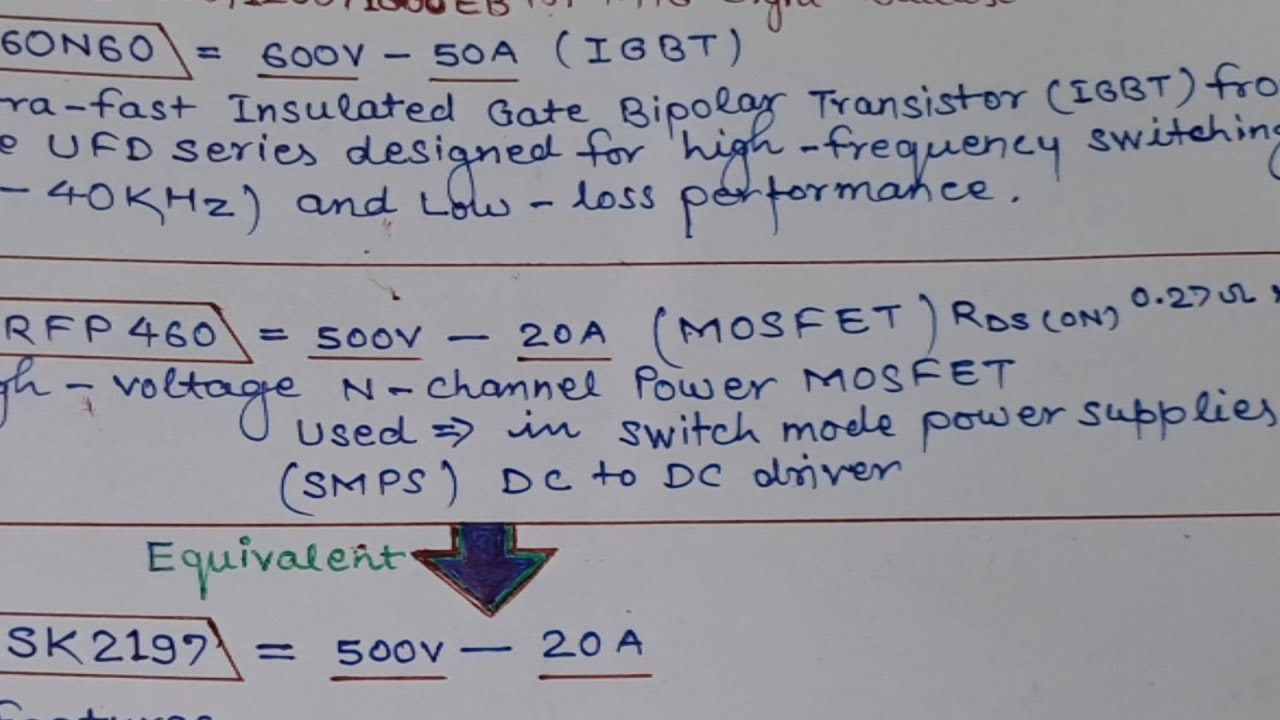 60N60 = 600V - 50A (IGBT)
ra-fast Insulated Gate Bipolar Transistor (IGBT) fro
e UFD series designed for high-frequency switching
- 40KHz) and Low-loss performance.
RFP460 = 500V - 20A (MOSFET) RDS(ON) 0.27Ω
gh-voltage N-channel Power MOSFET
used ⇒ in switch mode power supplies
(SMPS) DC to DC driver
Equivalent
SK2197 = 500V - 20A